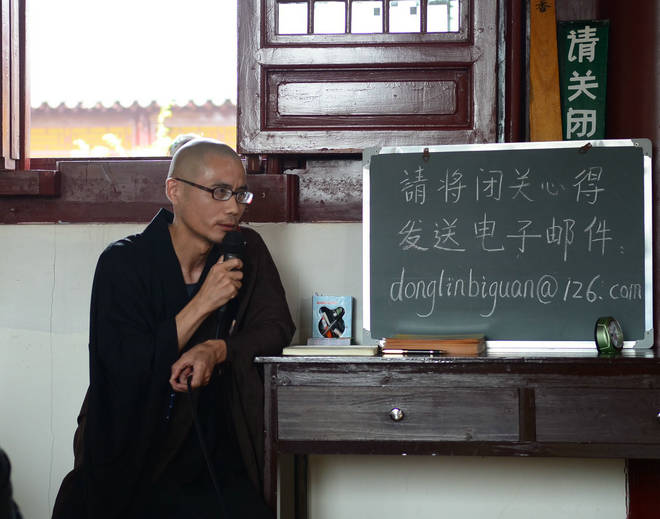 香
请关闭
請将闭关心得
发送电子邮件:
donglinbiguan@126.com